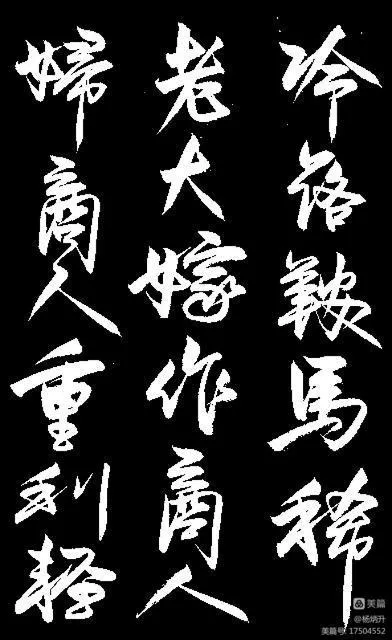 冷落鞍馬稀
老大嫁作商人
婦商人重利輕
美篇
@杨炳升
美篇号 17504552